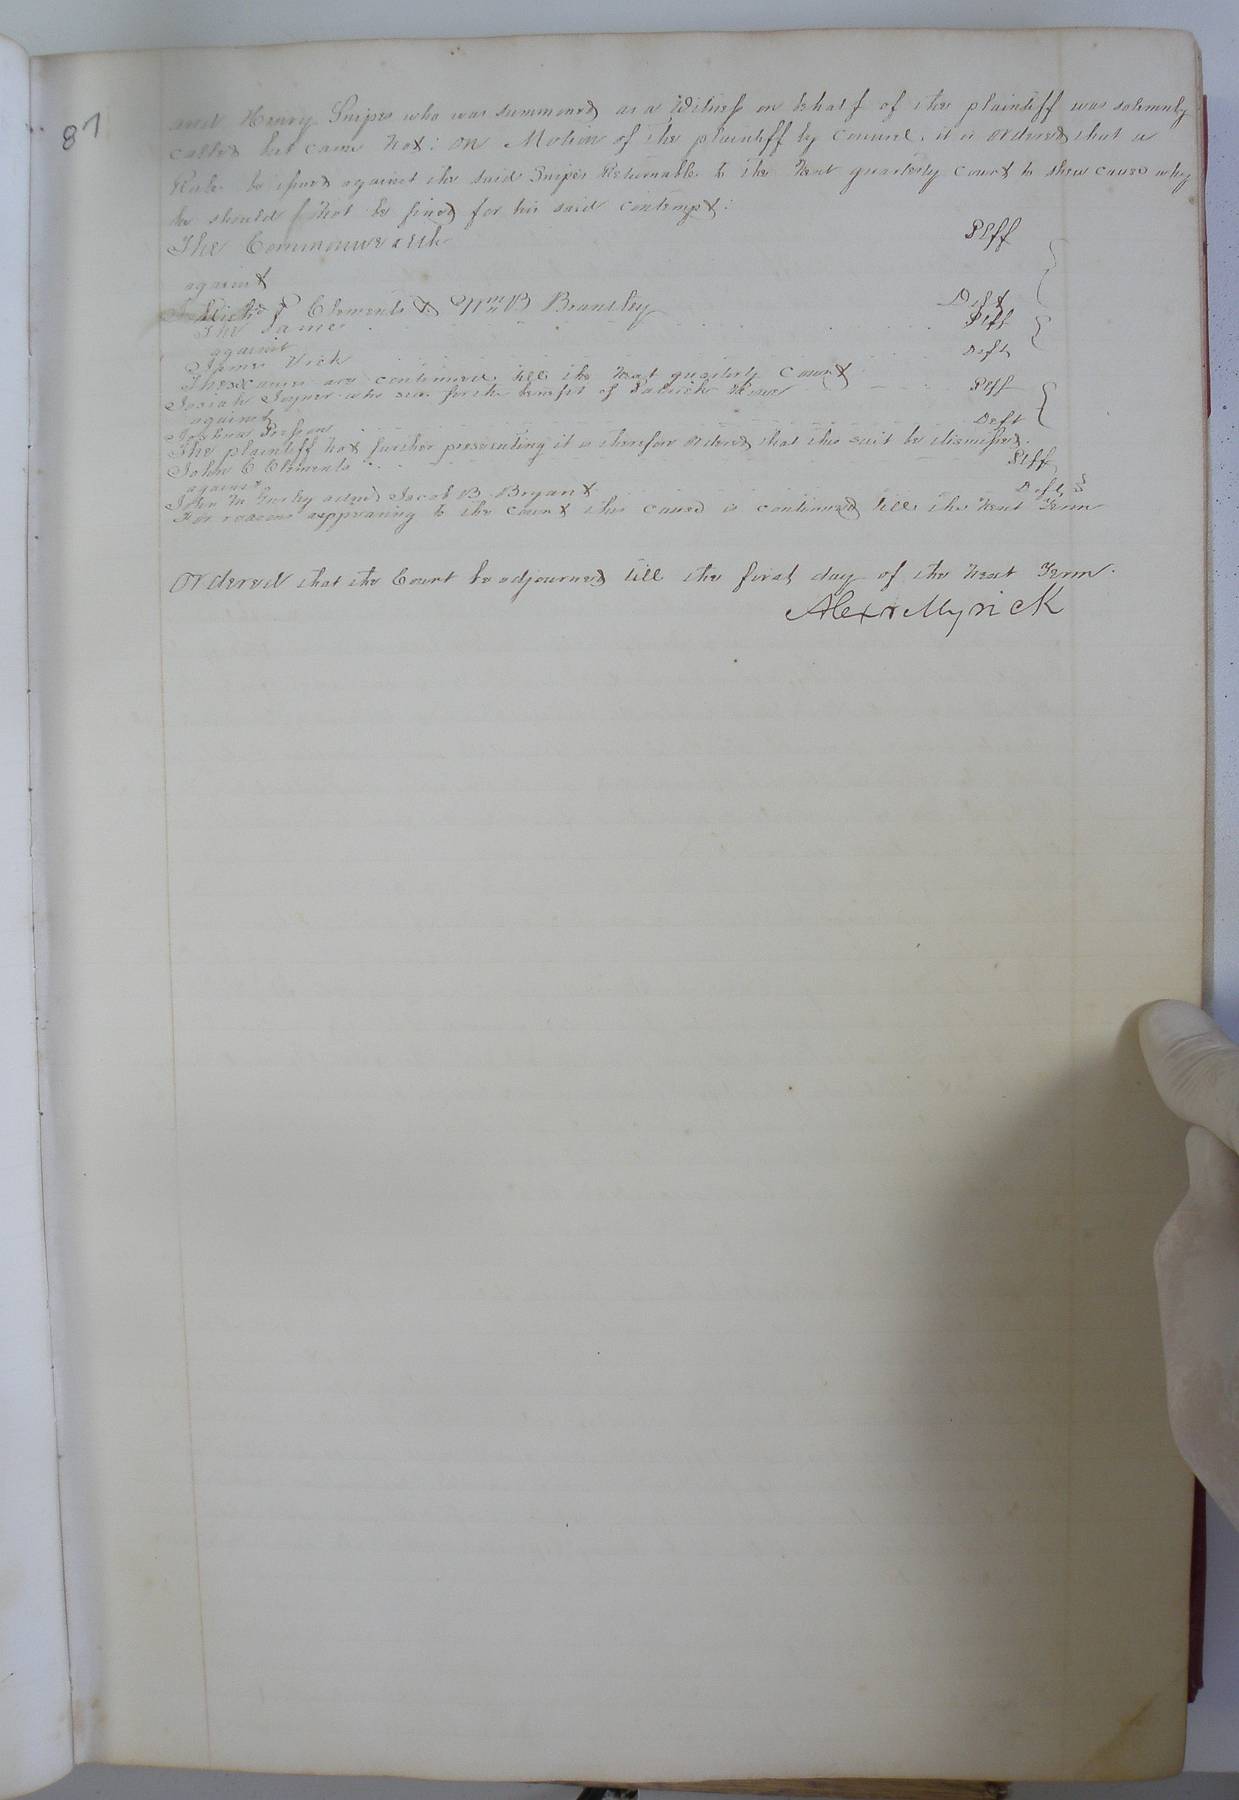 87
and Henry Snipes who was summoned as a Witness on behalf of the plaintiff was solemnly
called but came not: on Motion of the plaintiff by Counsel, it is ordered that a
Rule be issued against the said Snipes Returnable to the next quarterly Court to shew cause why
he should not be fined for his said contempt:
The Commonwealth Plff
against
Clements & Wm B Branstey Deft
The Same Plff
against
James Vick Deft
These causes are continued till the next quarterly Court
Josiah Joyner who sues for the benefit of Patrick Plff
against
Joshua Deft
The plaintiff not further prosecuting it is therefore ordered that this suit be dismissed.
John C Clements Plff
against
John N Gurley and Jacob B. Bryant Defts
For reasons appearing to the Court this cause is continued till the next Term
Ordered that the Court be adjourned till the first day of the next Term.
Alexr Myrick